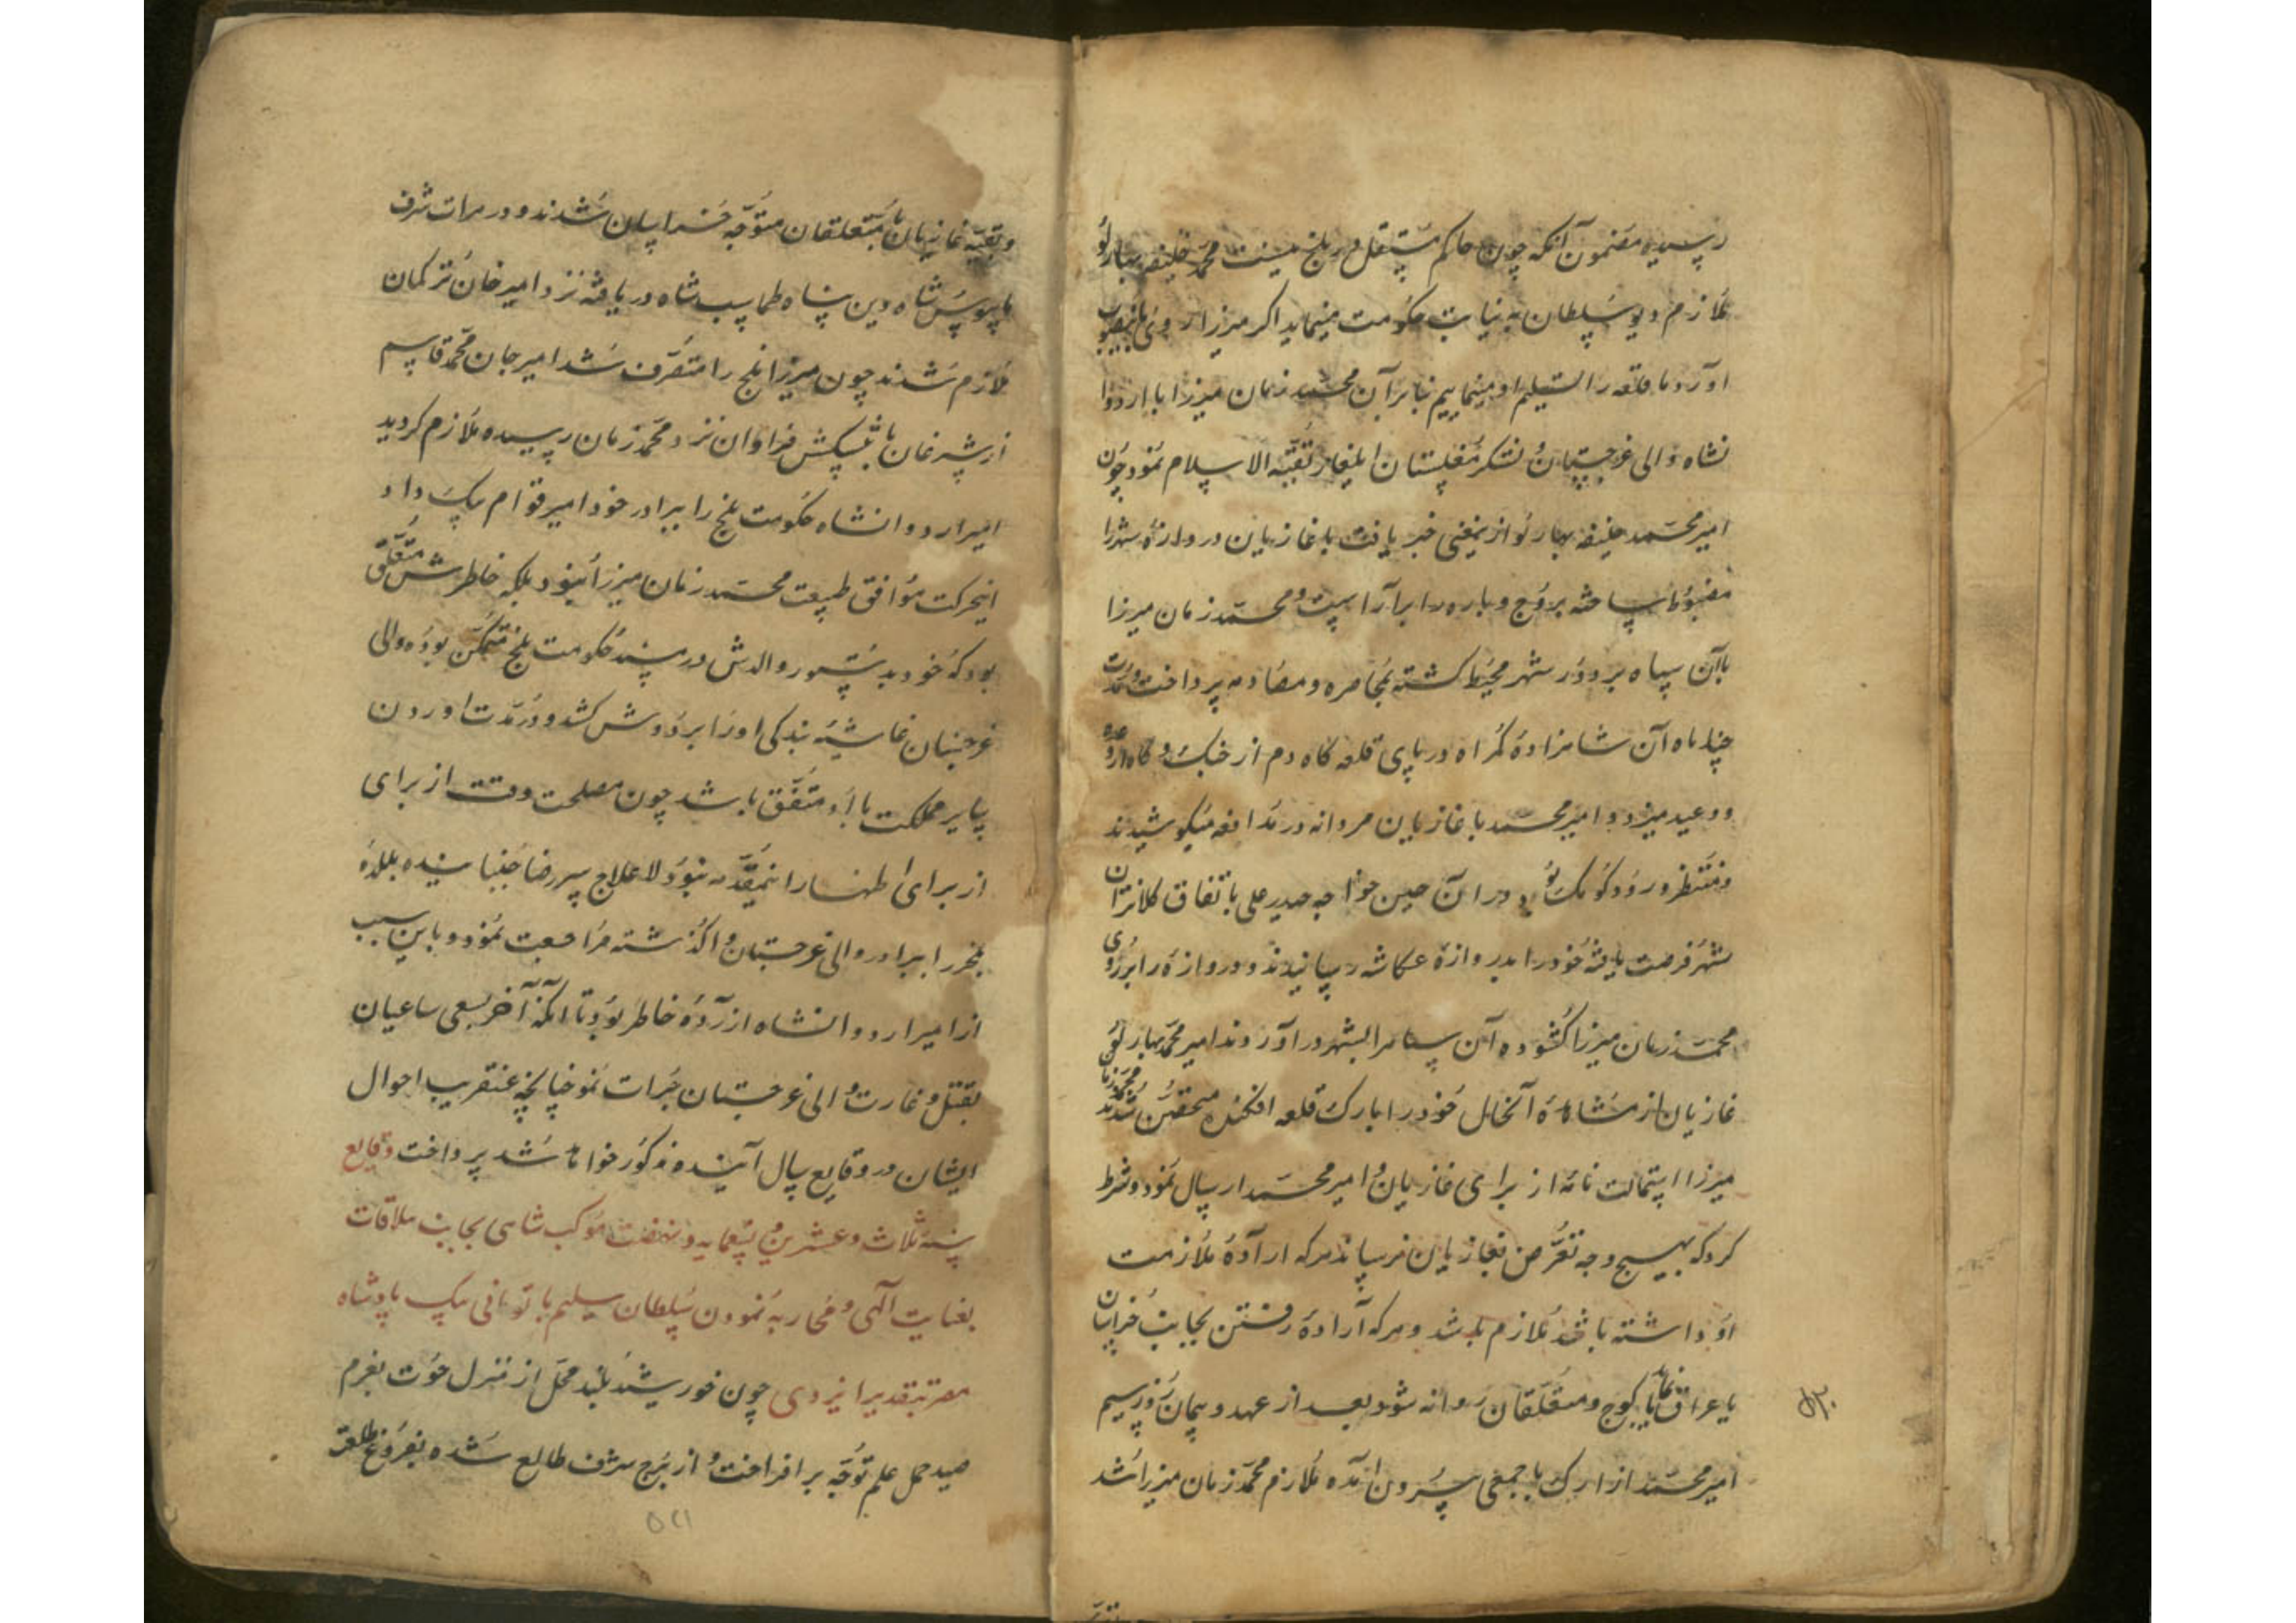 رسید مضمون آنکه چون حاکم مستقل در بلخ نیست محمد خلیفه بهارلو
ملازم دیو سلطان به نیابت حکومت مینماید اگر میرزا روی باینصوب
آورد ما قلعه را تسلیم او مینماییم بنابرآن محمد زمان میرزا با اردوا
نشاه والی غرجستان و لشکر مغلستان ایلغار بقبة الاسلام نمود چون
امیر محمد خلیفه بهارلو از یمعنی خبر یافت با غازیان دروازهٔ شهر را
مضبوط ساخته بروج و باره را بیاراست و محمد زمان میرزا
باآن سپاه بر دور شهر محیط کشته بمحاصره و مصادمه پرداخت و مدت
چهار ماه آن شاهزادهٔ گمراه در پای قلعه کاه دم از جنک و کاه از وعده
و وعید میزد و امیر محمد با غازیان مردانه در مدافعه میکوشیدند
و منتظر ورود کومک بود در آن حین خواجه حیدر علی باتفاق کلانتران
شهر فرصت یافته خود را بدروازهٔ عکاشه رسانیدند و دروازه را بر روی
محمد زمان میرزا کشوده آن سپاه را بشهر در آوردند امیر محمد بهارلو
غازیان از مشاهدهٔ آنحال خود را بارک قلعه افکنده متحصن شدند محمد زمان
میرزا استمالت نامه از برای غازیان و امیر محمد ارسال نمود و شرط
کرد که بهیچ وجه تعرض بغازیان نرساند هر که ارادهٔ ملازمت
او داشته باشد ملازم باشد و هرکه ارادهٔ رفتن بجانب خراسان
یا عراق نماید با کوچ و متعلقان روانه شود بعد از عهد و پیمان و قسم
امیر محمد از ارک با جمعی بیرون آمده ملازم محمد زمان میرزا شد
و بقیه غازیان با متعلقان متوجه خراسان شدند و در هرات شرف
پابوس شاه دین پناه طهماسب شاه دریافته نزد امیر خان ترکمان
ملازم شدند چون میرزا بلخ را متصرف شد امیر جان محمد قاسم
از شبرغان با پیشکش فراوان نزد محمد زمان رسیده ملازم کردید
امیر اردوانشاه حکومت بلخ را ببرادر خود امیر قوام بیک داد
اینحرکت موافق طبیعت محمد زمان میرزا نبود بلکه خاطرش متعلق
بود که خود بدستور والدش در مسند حکومت بلخ متمکن بوده والی
غرجستان غاشیهٔ بندکی او را بر دوش کشد و در بدست اوردن
سایر مملکت با او متفق باشد چون مصلحت وقت از برای
از برای اظهار اینمقدمه نبود لاعلاج سر رضا جنبانیده بلدهٔ
بلخ را ببرادر والی غرجستان واکذشته مراجعت نمود و باین سبب
از امیر اردوانشاه ازرده خاطر بود تا انکه آخر بسعی ساعیان
بقتل و غارت والی غرجستان جرات نمود چنانچه عنقریب احوال
ایشان در وقایع سال آینده مذکور خواهد شد پرداخت وقایع
سنه ثلاث و عشرین و تسعمایه و نهضت موکب شاهی بجانب ملاقات
بعنایت آلهی و محاربه نمودن سلطان سلیم با تومانی بیک پادشاه
مصر بتقدیر ایزدی چون خورشید بلند محل از منزل حوت بعزم
صید حمل علم توجه بر افراخت و از برج شرف طالع شده بفروغ طلعت
۵۲۱